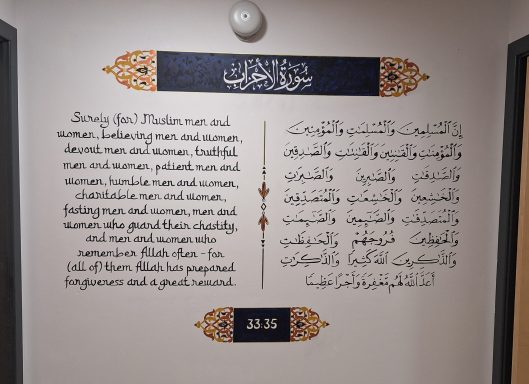 سُورَةُ الْأَحْزَابِ
Surely (for) Muslim men and
women, believing men and women,
devout men and women, truthful
men and women, patient men and
women, humble men and women,
charitable men and women,
fasting men and women, men and
women who guard their chastity,
and men and women who
remember Allah often – for
(all of) them Allah has prepared
forgiveness and a great reward.
إِنَّ ٱلْمُسْلِمِينَ وَٱلْمُسْلِمَٰتِ وَٱلْمُؤْمِنِينَ
وَٱلْمُؤْمِنَٰتِ وَٱلْقَٰنِتِينَ وَٱلْقَٰنِتَٰتِ وَٱلصَّٰدِقِينَ
وَٱلصَّٰدِقَٰتِ وَٱلصَّٰبِرِينَ وَٱلصَّٰبِرَٰتِ
وَٱلْخَٰشِعِينَ وَٱلْخَٰشِعَٰتِ وَٱلْمُتَصَدِّقِينَ
وَٱلْمُتَصَدِّقَٰتِ وَٱلصَّٰٓئِمِينَ وَٱلصَّٰٓئِمَٰتِ
وَٱلْحَٰفِظِينَ فُرُوجَهُمْ وَٱلْحَٰفِظَٰتِ
وَٱلذَّٰكِرِينَ ٱللَّهَ كَثِيرًا وَٱلذَّٰكِرَٰتِ
أَعَدَّ ٱللَّهُ لَهُم مَّغْفِرَةً وَأَجْرًا عَظِيمًا
33:35